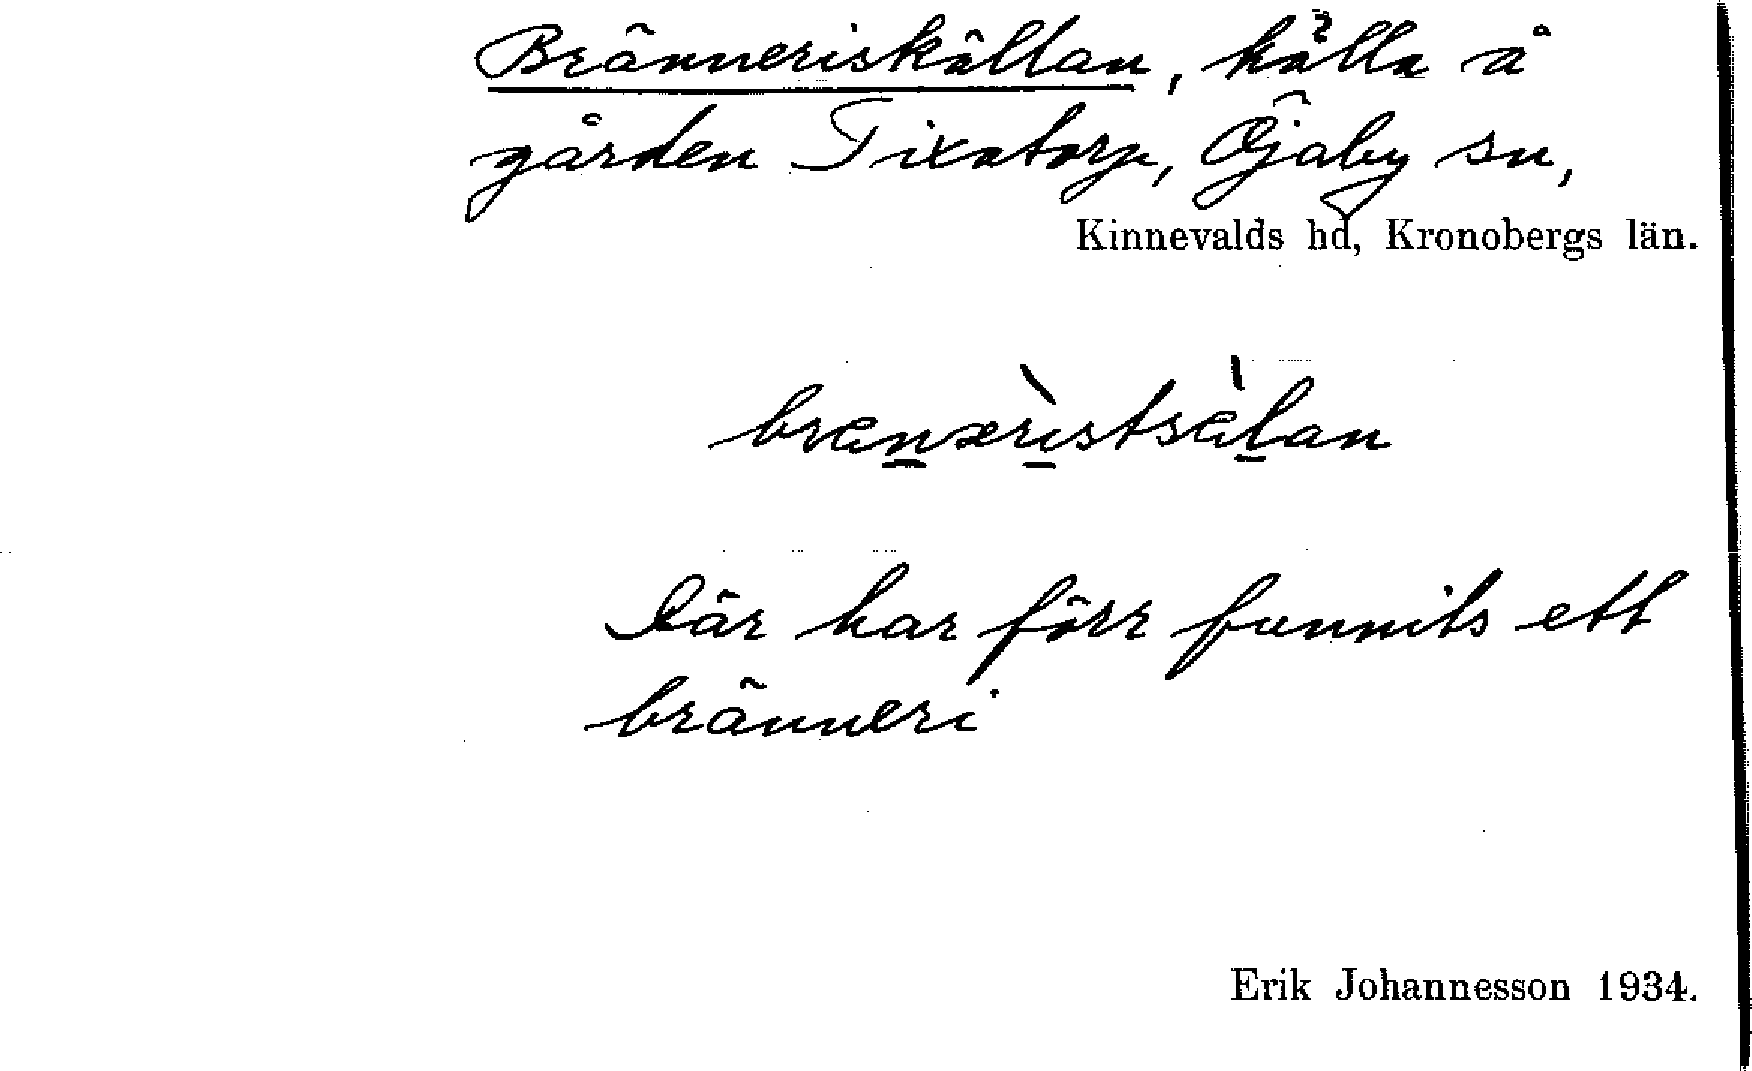 Bränneriskällan, källa å
gården Tixatorp, Öjaby sn,
Kinnevalds hd, Kronobergs län.
brænærìstsæ̀lan
Där har förr funnits ett
bränneri
Erik Johannesson 1934.